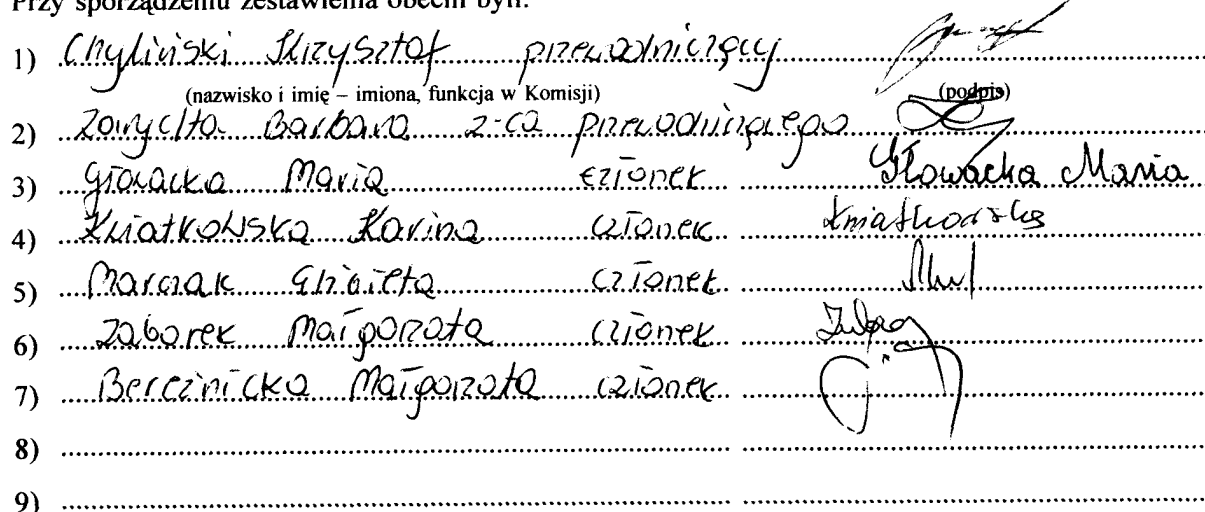 Przy sporządzeniu zestawienia obecni byli:
1) Chyliński Krzysztof przewodniczący
(nazwisko i imię – imiona, funkcja w Komisji) (podpis)
2) Zarychta Barbara z-ca przewodniczącego
3) Głowacka Maria członek Głowacka Maria
4) Kwiatkowska Karina członek Kwiatkowska
5) Marczak Elżbieta członek
6) Zaborek Małgorzata członek
7) Bereźnicka Małgorzata członek
8)
9)